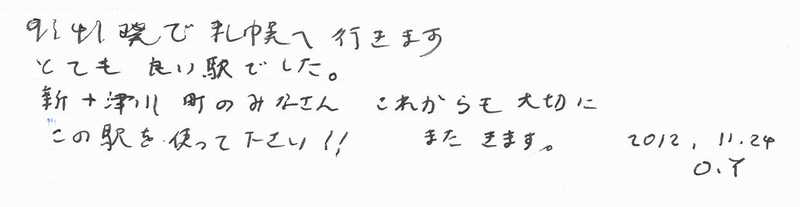 9:41発で札幌へ行きます
とても良い駅でした。
新十津川町のみなさん これからも大切に
この駅を使って下さい!! また きます。 2012.11.24
O.Y